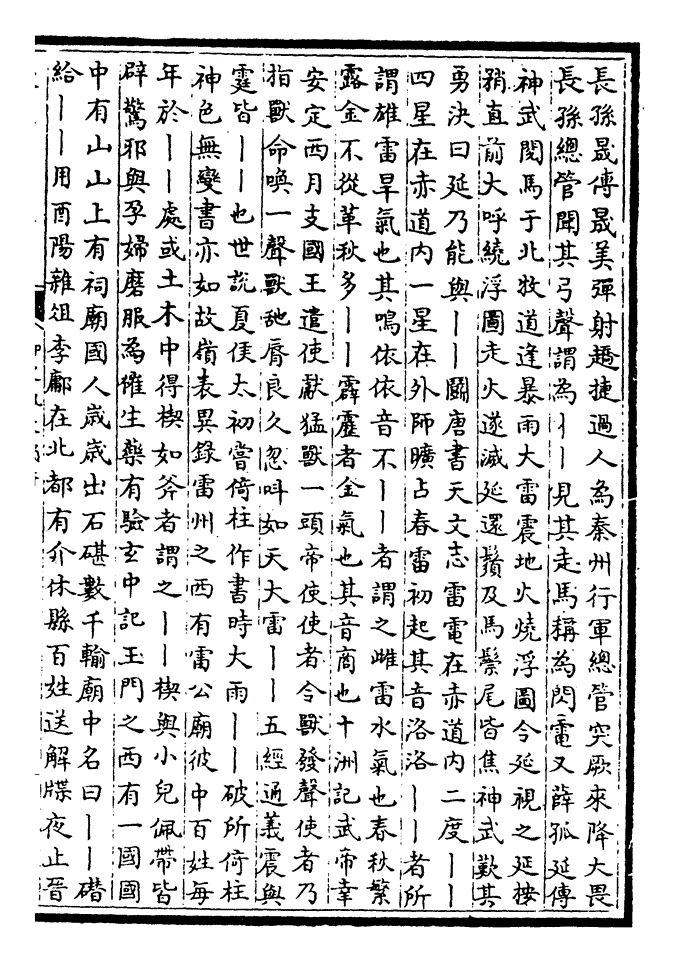 長孫晟傳晟美彈射趫捷過人為秦州行軍總管突厥來降大畏
長孫總管聞其弓聲謂為丨丨見其走馬稱為閃電又薛孤延傳
神武閱馬于北牧道逢暴雨大雷震地火燒浮圖令延視之延按
矟直前大呼繞浮圖走火遂滅延還鬚及馬鬃尾皆焦神武歎其
勇決曰延乃能與丨丨鬭唐書天文志雷電在赤道內二度丨丨
四星在赤道內一星在外師曠占春雷初起其音洛洛丨丨者所
謂雄雷旱氣也其鳴依依音不丨丨者謂之雌雷水氣也春秋繁
露金不從革秋多丨丨霹靂者金氣也其音商也十洲記武帝幸
安定西月支國王遣使獻猛獸一頭帝使使者令獸發聲使者乃
指獸命喚一聲獸䑛脣良久忽叫如天大雷丨丨五經通義震與
霆皆丨丨也世說夏侯太初嘗倚柱作書時大雨丨丨破所倚柱
神色無變書亦如故嶺表異錄雷州之西有雷公廟彼中百姓每
年於丨丨處或土木中得楔如斧者謂之丨丨楔與小兒佩帶皆
辟驚邪與孕婦磨服為催生藥有驗玄中記玉門之西有一國國
中有山山上有祠廟國人歲歲出石碪數千輸廟中名曰丨丨礎
給丨丨用酉陽雜俎李鄘在北都有介休縣百姓送解牒夜止晉